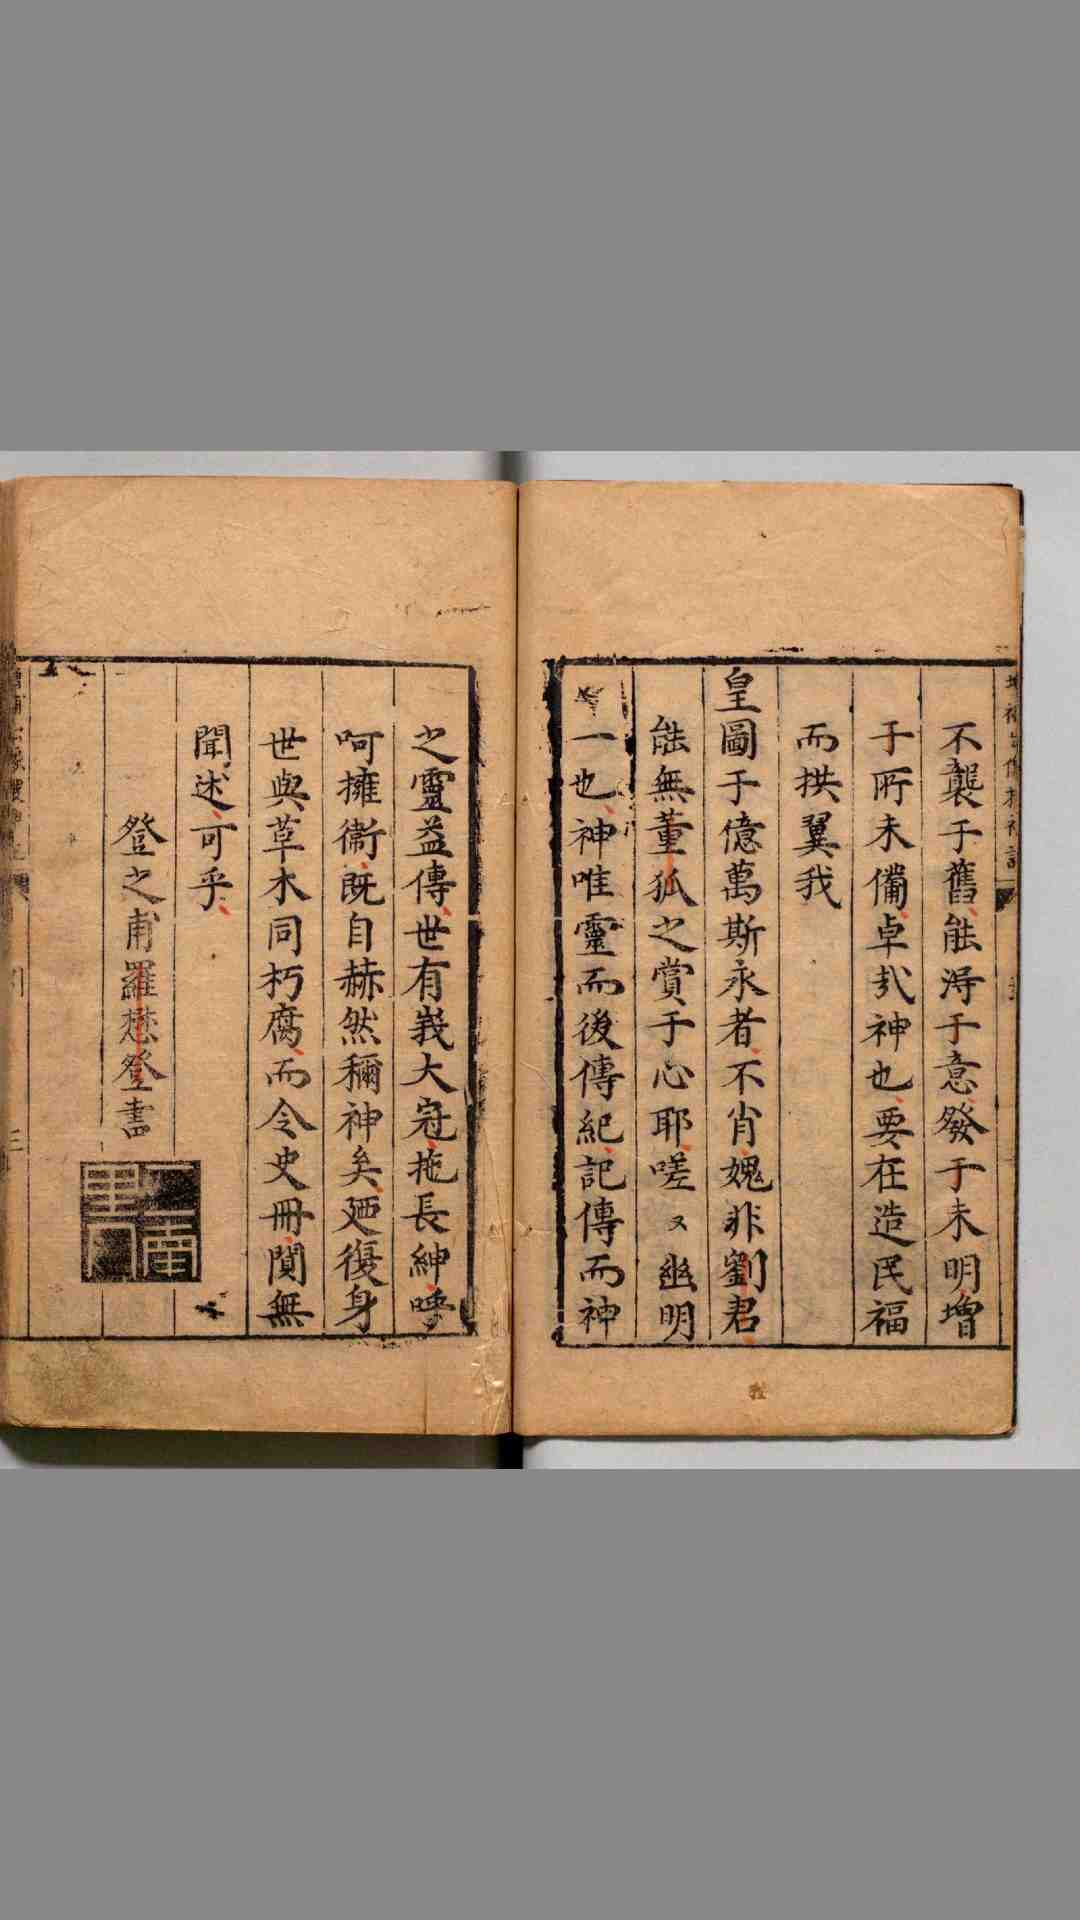 不襲于舊能淂于意發于未明增
于所未備卓㢤神也要在造民福
而拱翼我
皇圖于億萬斯永者不肖媿非劉君
能無董狐之賞于心耶嗟〻幽明
一也神唯靈而後傳紀記傳而神
之靈益傳世有峩大冠拖長紳呼
呵擁衞既自赫然稱神矣廼復身
世與草木同朽腐而令史冊闃無
聞述可乎
登之甫羅懋登書